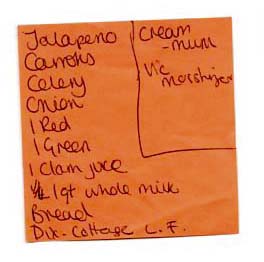 Jalapeno
Carrots
Celery
Onion
1 Red
1 Green
1 Clam juce
1qt whole milk
Bread
Dix - Cottage L.F.
Cream
- mum